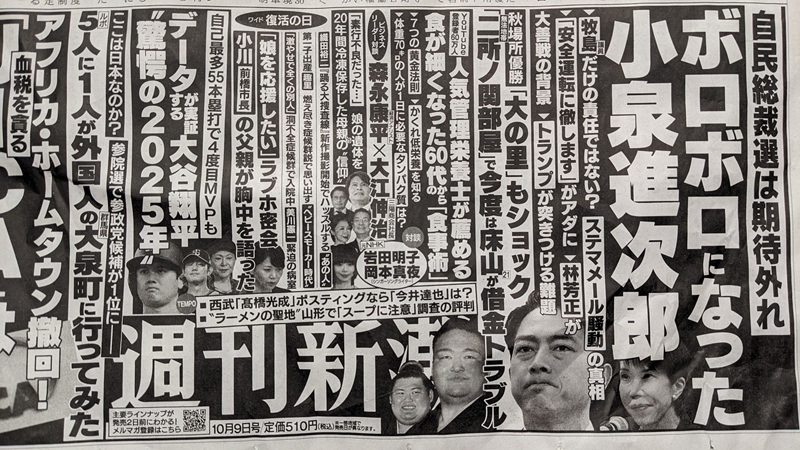 自民総裁選は期待外れ
ボロボロになった
小泉進次郎
▼牧島だけの責任ではない? ステマメール騒動の真相
▼「安全運転に徹します」がアダに ▼林芳正が
大差戦の背景 ▼トランプが突きつける難題
秋場所優勝「大の里」もショック
二所ノ関部屋で今度は床山が借金トラブル
YouTube登録者60万人
人気管理栄養士が薦める
食が細くなった60代からの「食事術」
▼7つの黄金法則 ▼かくれ低栄養を知る
▼体重70㌔の人が1日に必要なタンパク質は?
ビジネスリーダー対談
森永康平×大江博治
対談
元NHK
岩田明子
岡本真夜
(シンガーソングライター)
ワイド 復活の日
「素行不良だった…」娘の遺体を
20年間冷凍保存した母親の「信仰」
織田裕二「踊る大捜査線」新作撮影開始でハッスルする「あの人」
第二子出産 燃え尽き症候群説で思い出す「ベビースモーカー」時代
「娘を応援したい」ラブホ密会
小川前橋市長の父親が胸中を語った
自己最多55本塁打で4度目MVPも
データが実証する 大谷翔平
“驚愕の2025年”
ここは日本なのか? 参院選で参政党候補が1位に
ルポ
5人に1人が外国人の大泉町に行ってみた
群馬県
アフリカ・ホームタウン撤回!
血税を貪る
TEMPO
■西武「髙橋光成」ポスティングなら「今井達也」は?
■“ラーメンの聖地”山形で「スープに注意」調査の評判
週刊新潮
主要ラインナップが
発売2日前にわかる!
メルマガ登録はこちら
10月9日号/定価510円(税込)
※一部地域で
発売日が異なります。